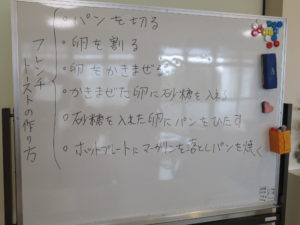 フレンチトーストの作り方
○ パンを切る
○ 卵を割る
○ 卵をかきまぜる
○ かきまぜた卵に砂糖を入れる
○ 砂糖を入れた卵にパンをひたす
○ ホットプレートにマーガリンを落としパンを焼く